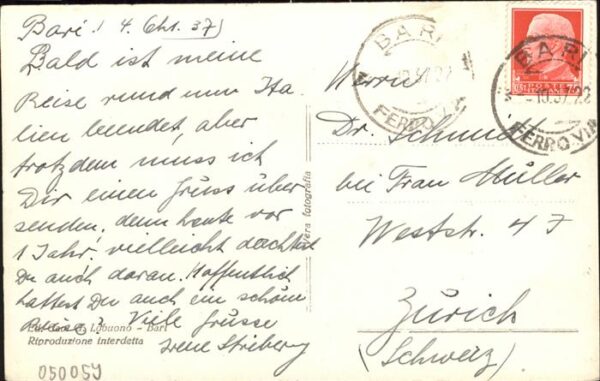 Bari! 4. Okt. 37)
Bald ist meine
Reise rund um Ita
lien beendet, aber
trotzdem muss ich
Dir einen Gruss über
senden, denn heute vor
1 Jahr! vielleicht dachtest
Du auch daran. Hoffentlich
hattest Du auch ein schöne
Reise? Viele Grüsse
Irene
Lobuono - Bari
Riproduzione interdetta
050059
vera fotografia
BARI
FERROVIA
BARI
-10.37.22
FERROVIA
Herrn
Dr. Schmidt
bei Frau Müller
Weststr. 47
Zürich
(Schweiz)